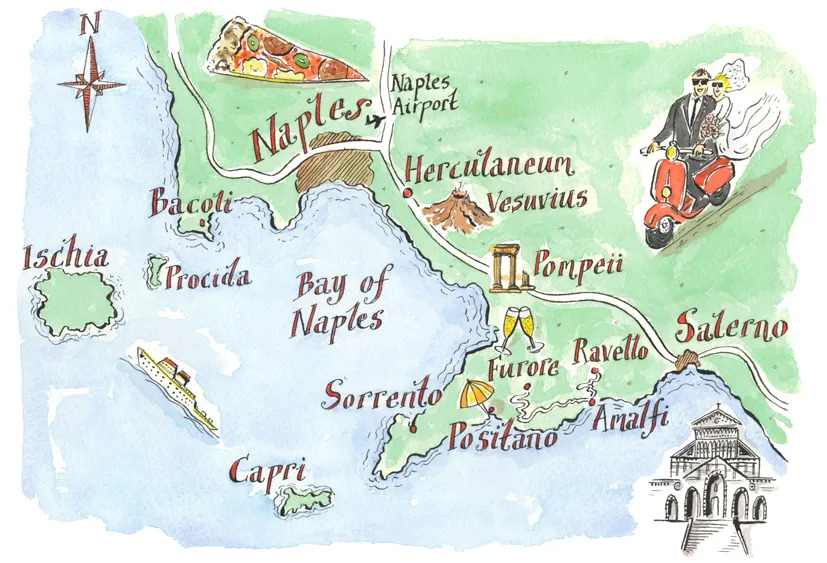 N
Naples
Airport
Naples
Herculaneum
Vesuvius
Bacoli
Ischia
Procida
Pompeii
Bay of
Naples
Salerno
Ravello
Furore
Sorrento
Amalfi
Positano
Capri